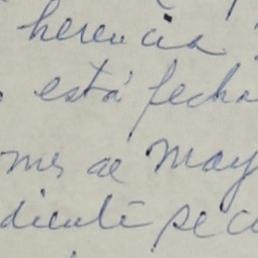 herencia
está fecha
mes de May
diente se c